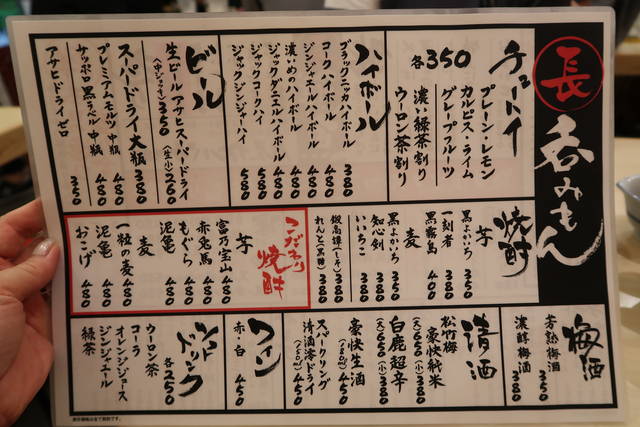 長
呑みもん
チューハイ
各350
プレーン・レモン
カルピス・ライム
グレープフルーツ
濃い緑茶割り
ウーロン茶割り
ハイボール
ブラックニッカハイボール 380
コークハイボール 480
ジンジャエールハイボール 480
濃いめのハイボール 480
ジャックダニエルハイボール 480
ジャックコークハイ 580
ジャックジンジャーハイ 580
ビール
生ビール アサヒスーパードライ
(中ジョッキ) 350 (生小) 260
スーパードライ大瓶 580
プレミアムモルツ 中瓶 480
サッポロ黒ラベル 中瓶 480
アサヒドライゼロ 350
焼酎
芋
黒よかいち 350
一刻者 380
黒霧島 400
麦
黒よかいち 350
知心剣 380
いいちこ 380
鍛高譚(しそ) 380
れんと(黒糖) 380
こだわり焼酎
芋
富乃宝山 480
赤兎馬 480
もぐら 480
泥亀 480
麦
一粒の麦 480
泥亀 480
おこげ 480
梅酒
芳熟梅酒 350
濃醇梅酒 380
清酒
松竹梅 豪快純米
(大)650 (小)380
白鹿 超辛
(大)650 (小)380
豪快生酒
(300ml) 450
スパークリング
清酒澪ドライ
(150ml) 450
ワイン
赤・白 450
ソフトドリンク
各250
ウーロン茶
コーラ
オレンジジュース
ジンジャエール
緑茶